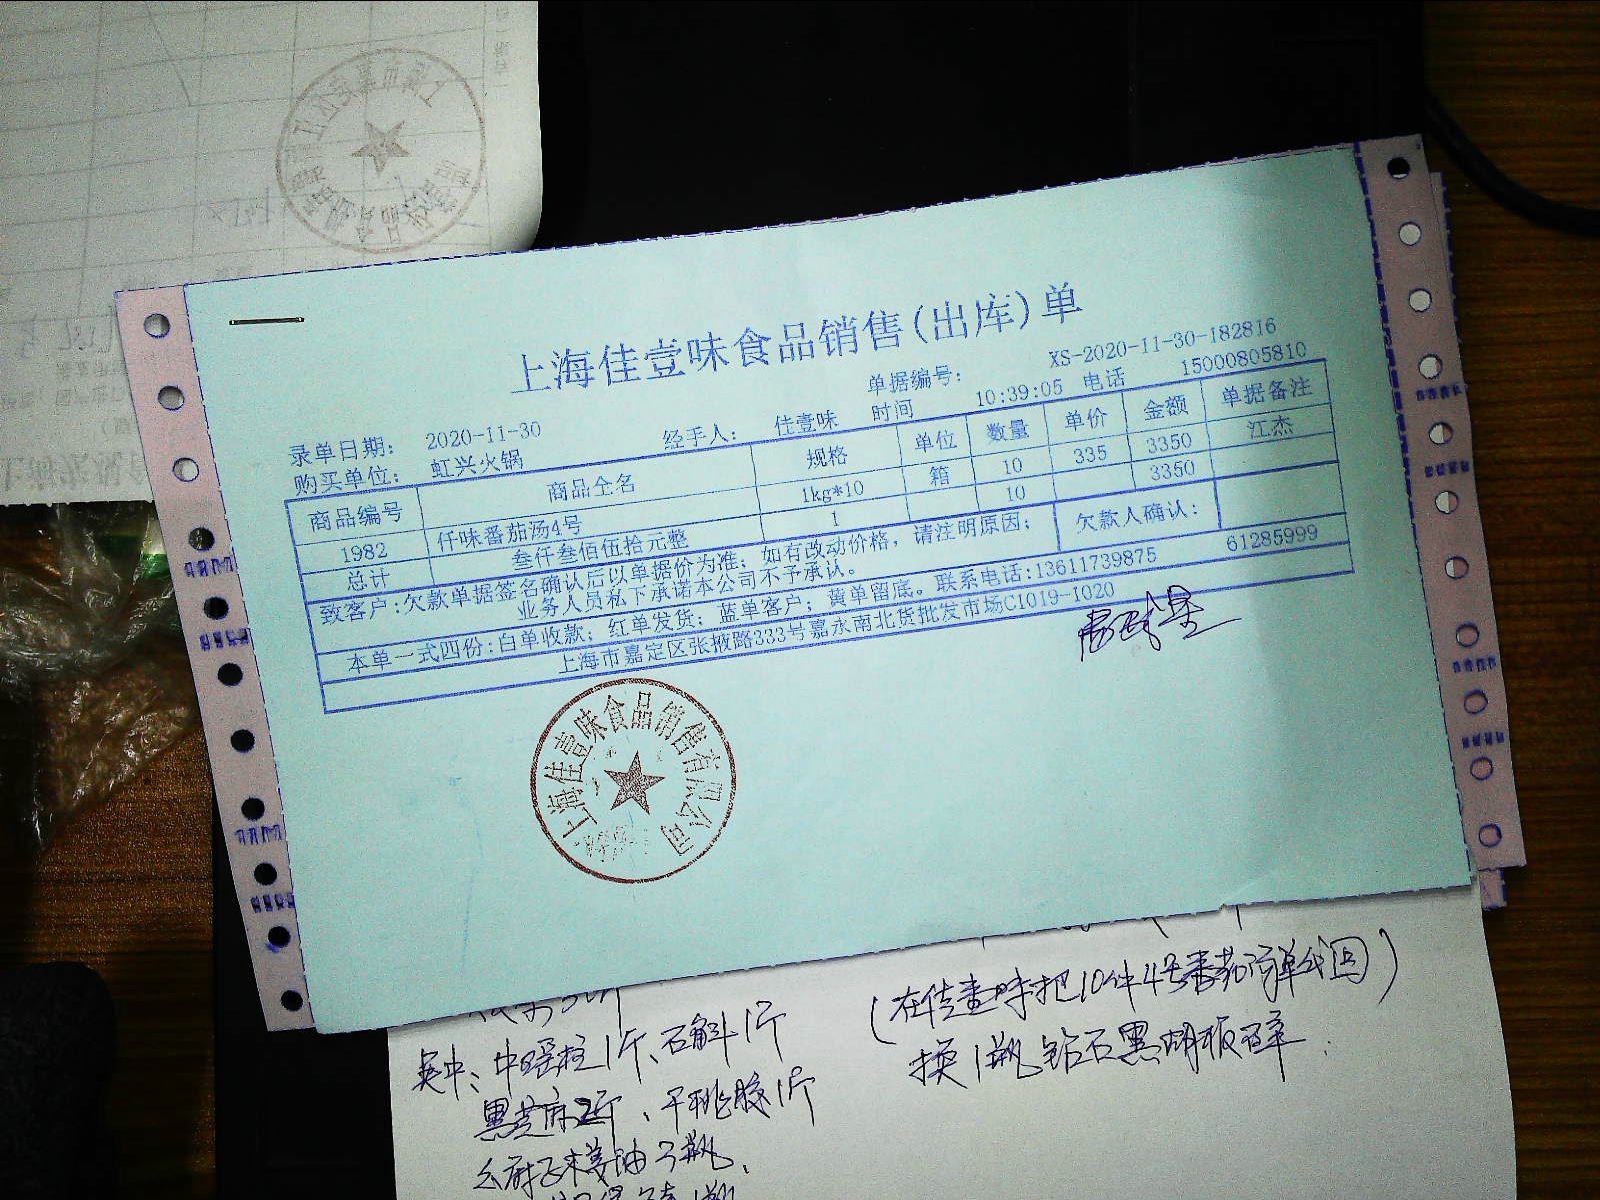 上海佳壹味食品销售(出库)单
单据编号: XS-2020-11-30-182816
录单日期: 2020-11-30 经手人: 佳壹味 时间 10:39:05 电话 15000805810
购买单位: 虹兴火锅
商品编号 商品全名 规格 单位 数量 单价 金额 单据备注
1982 仟味番茄汤4号 1kg*10 箱 10 335 3350 江杰
总计 叁仟叁佰伍拾元整 1 10 3350
致客户:欠款单据签名确认后以单据价为准; 如有改动价格, 请注明原因; 欠款人确认:
业务人员私下承诺本公司不予承认。
本单一式四份:白单收款; 红单发货; 蓝单客户; 黄单留底。联系电话:13611739875 61285999
上海市嘉定区张掖路333号嘉永南北货批发市场C1019-1020
上海佳壹味食品销售有限公司
(在佳壹味把10件4号番茄汤单线回)
换1瓶钻石黑胡椒碎
其中、中瑶柱1斤、石斛1斤
黑芝麻2斤、干桃胶1斤